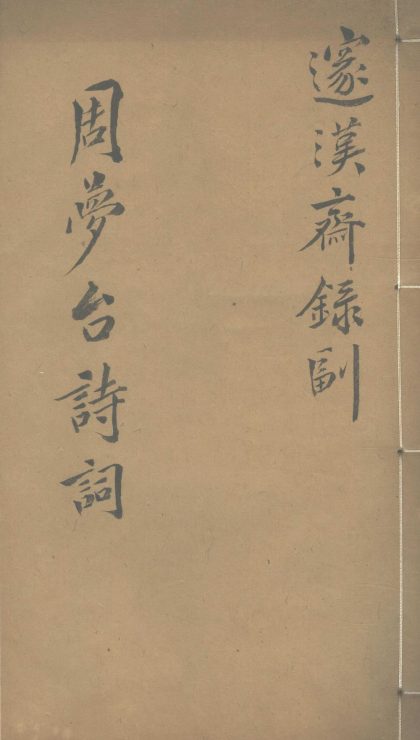 邃漢齋録副
周夢台詩詞